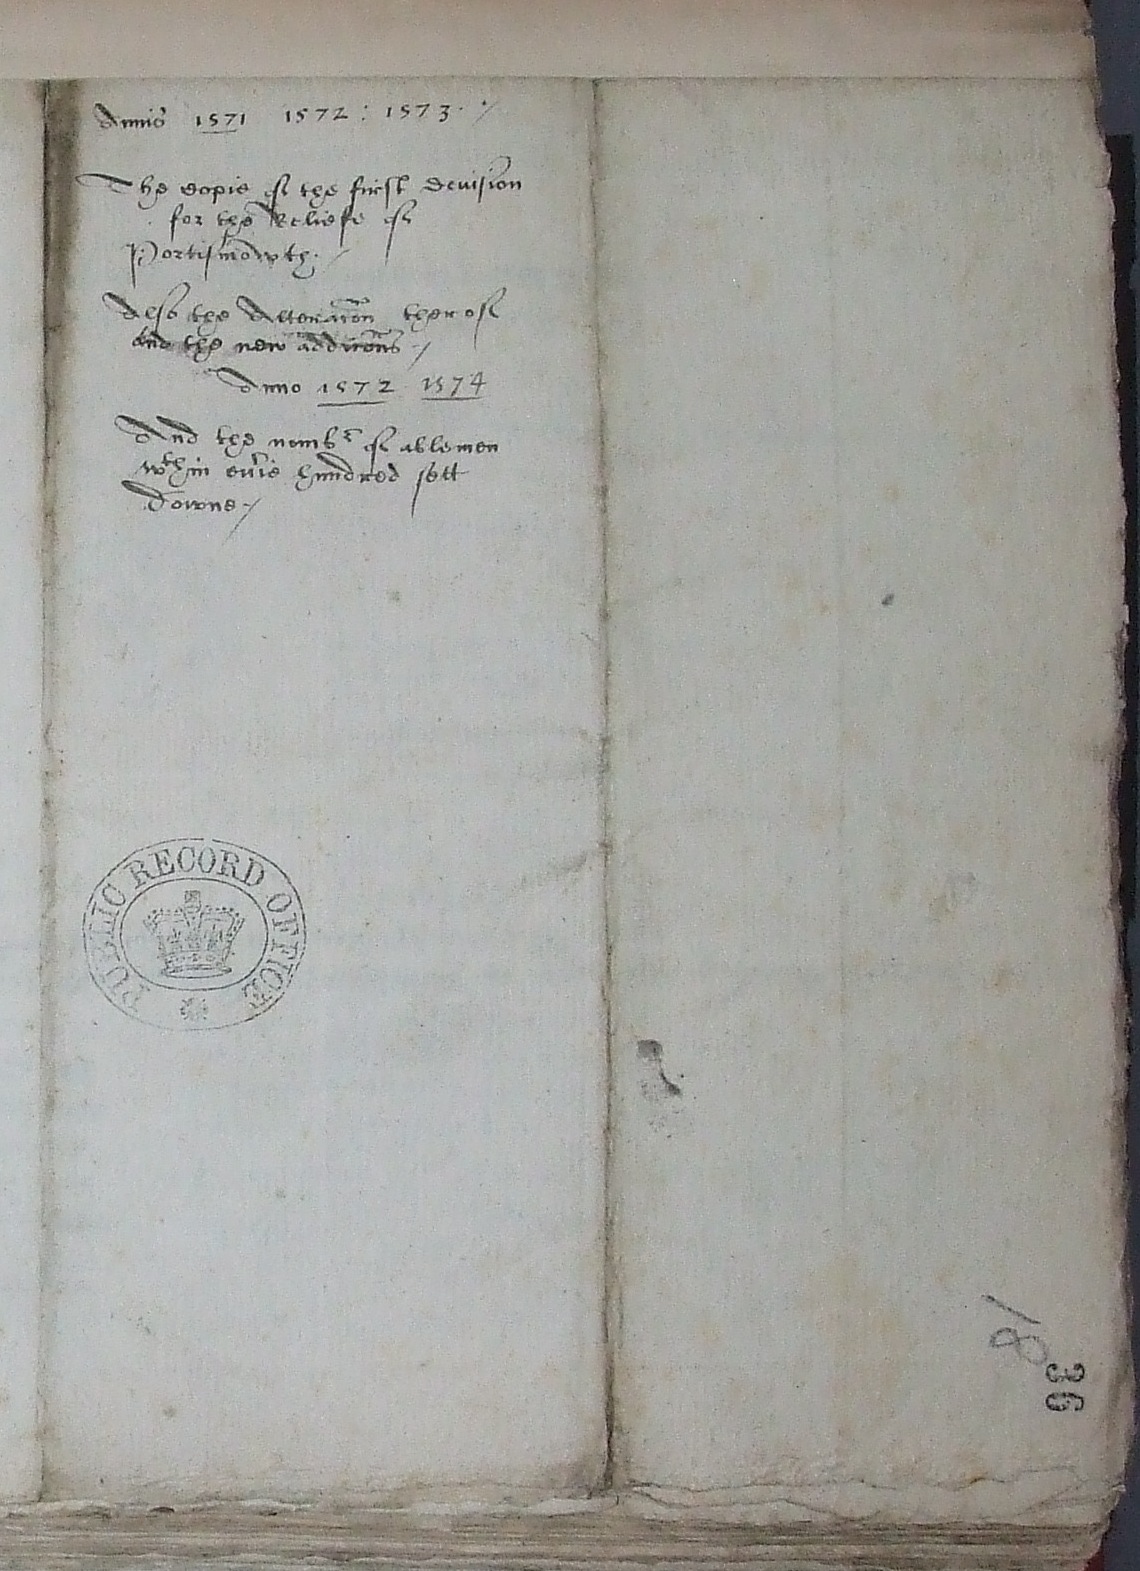 Annis 1571 1572 : 1573 ./
The copie of the first devision
for the Reliefe of
Portismowth. /
Also the Alteracōn therof
And the new addicōns ./
Anno 1572 1574
And the nombr of ablemen
wthin eu'ie hundred sett
downe ./
PUBLIC RECORD OFFICE
81
36